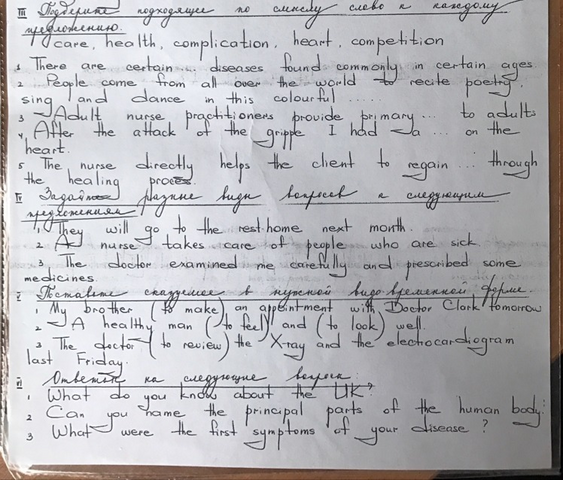 III Подберите подходящее по смыслу слово к каждому
предложению.
care, health, complication, heart, competition
1 There are certain ... diseases found commonly in certain ages.
2 People come from all over the world to recite poetry,
sing and dance in this colourful .....
3 Adult nurse practitioners provide primary ... to adults
4 After the attack of the grippe I had a ... on the
heart.
5 The nurse directly helps the client to regain ... through
the healing process.
IV Задайте разные виды вопросов к следующим
предложениям
1. They will go to the rest-home next month.
2 A nurse takes care of people who are sick.
3. The doctor examined me carefully and prescribed some
medicines
V Поставьте сказуемое в нужной видо-временной форме.
1 My brother (to make) an appointment with Doctor Clark tomorrow
2 A healthy man (to feel) and (to look) well.
3 The doctor (to review) the X-ray and the electrocardiogram
last Friday.
VI Ответьте на следующие вопросы
1 What do you know about the UK?
2 Can you name the principal parts of the human body?
3 What were the first symptoms of your disease?